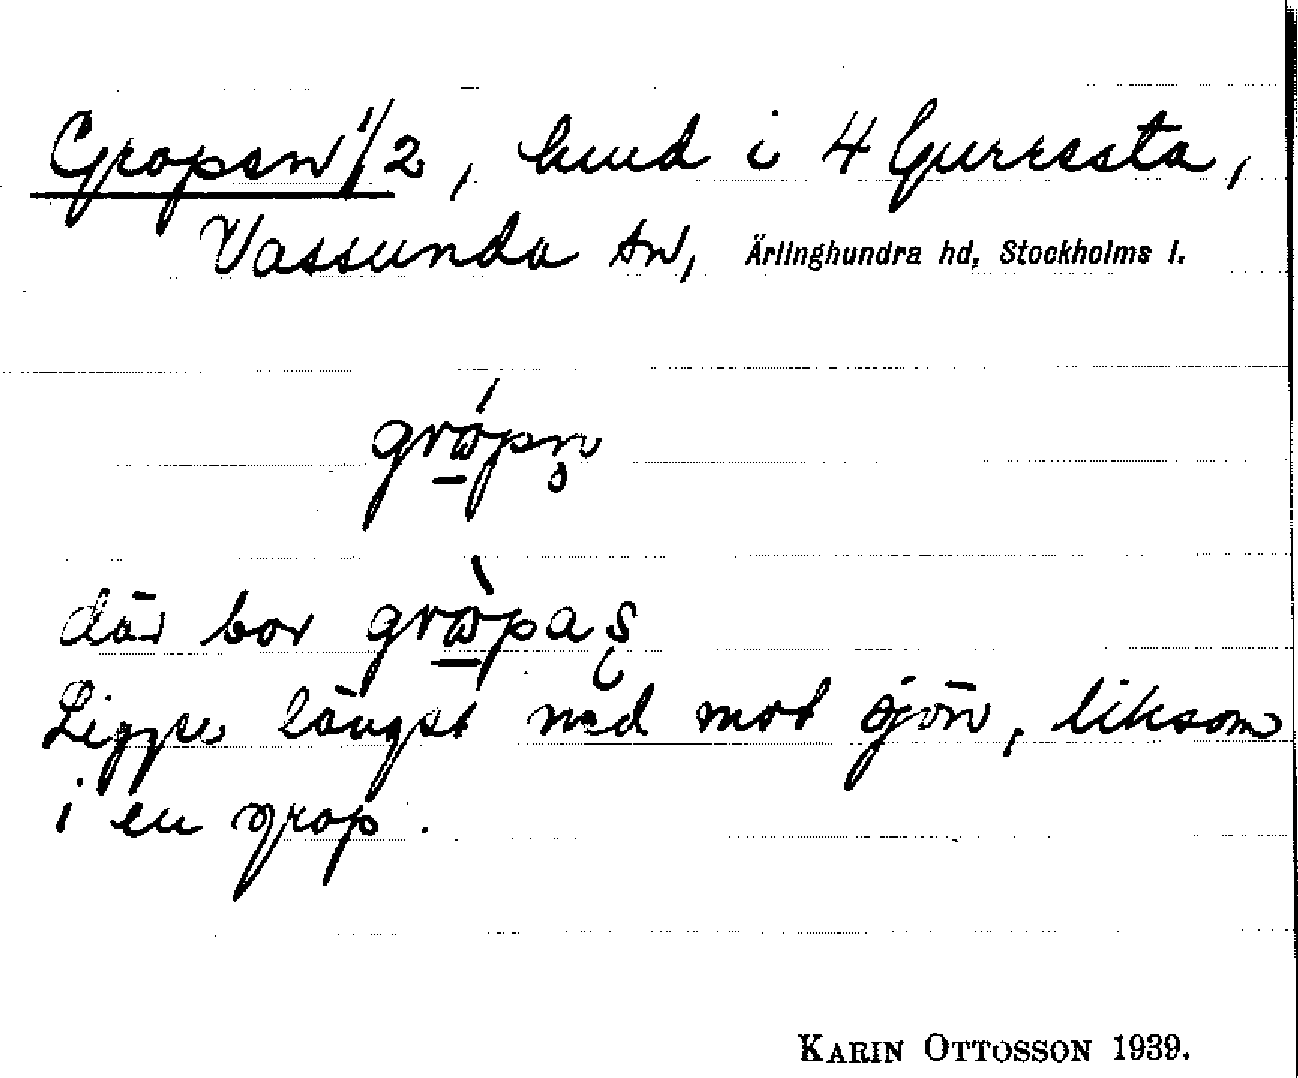 Gropen 1/2, hmd i 4 Gurresta,
Vassunda sn, Ärlinghundra hd, Stockholms l.
grɷ́pn̥
där bor grɷ̀pas
Ligger längst ned mot sjön, liksom
i en grop.
KARIN OTTOSSON 1939.